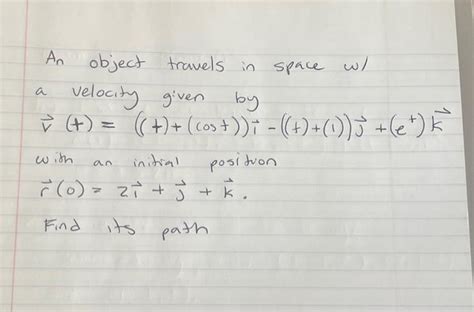 An object travels in space w/
a velocity given by
v⃗ (t) = ((t)+(cost))i⃗ - ((t)+(1))j⃗ +(e^t)k⃗
with an initial position
r⃗(0) = 2i⃗ + j⃗ + k⃗.
Find its path